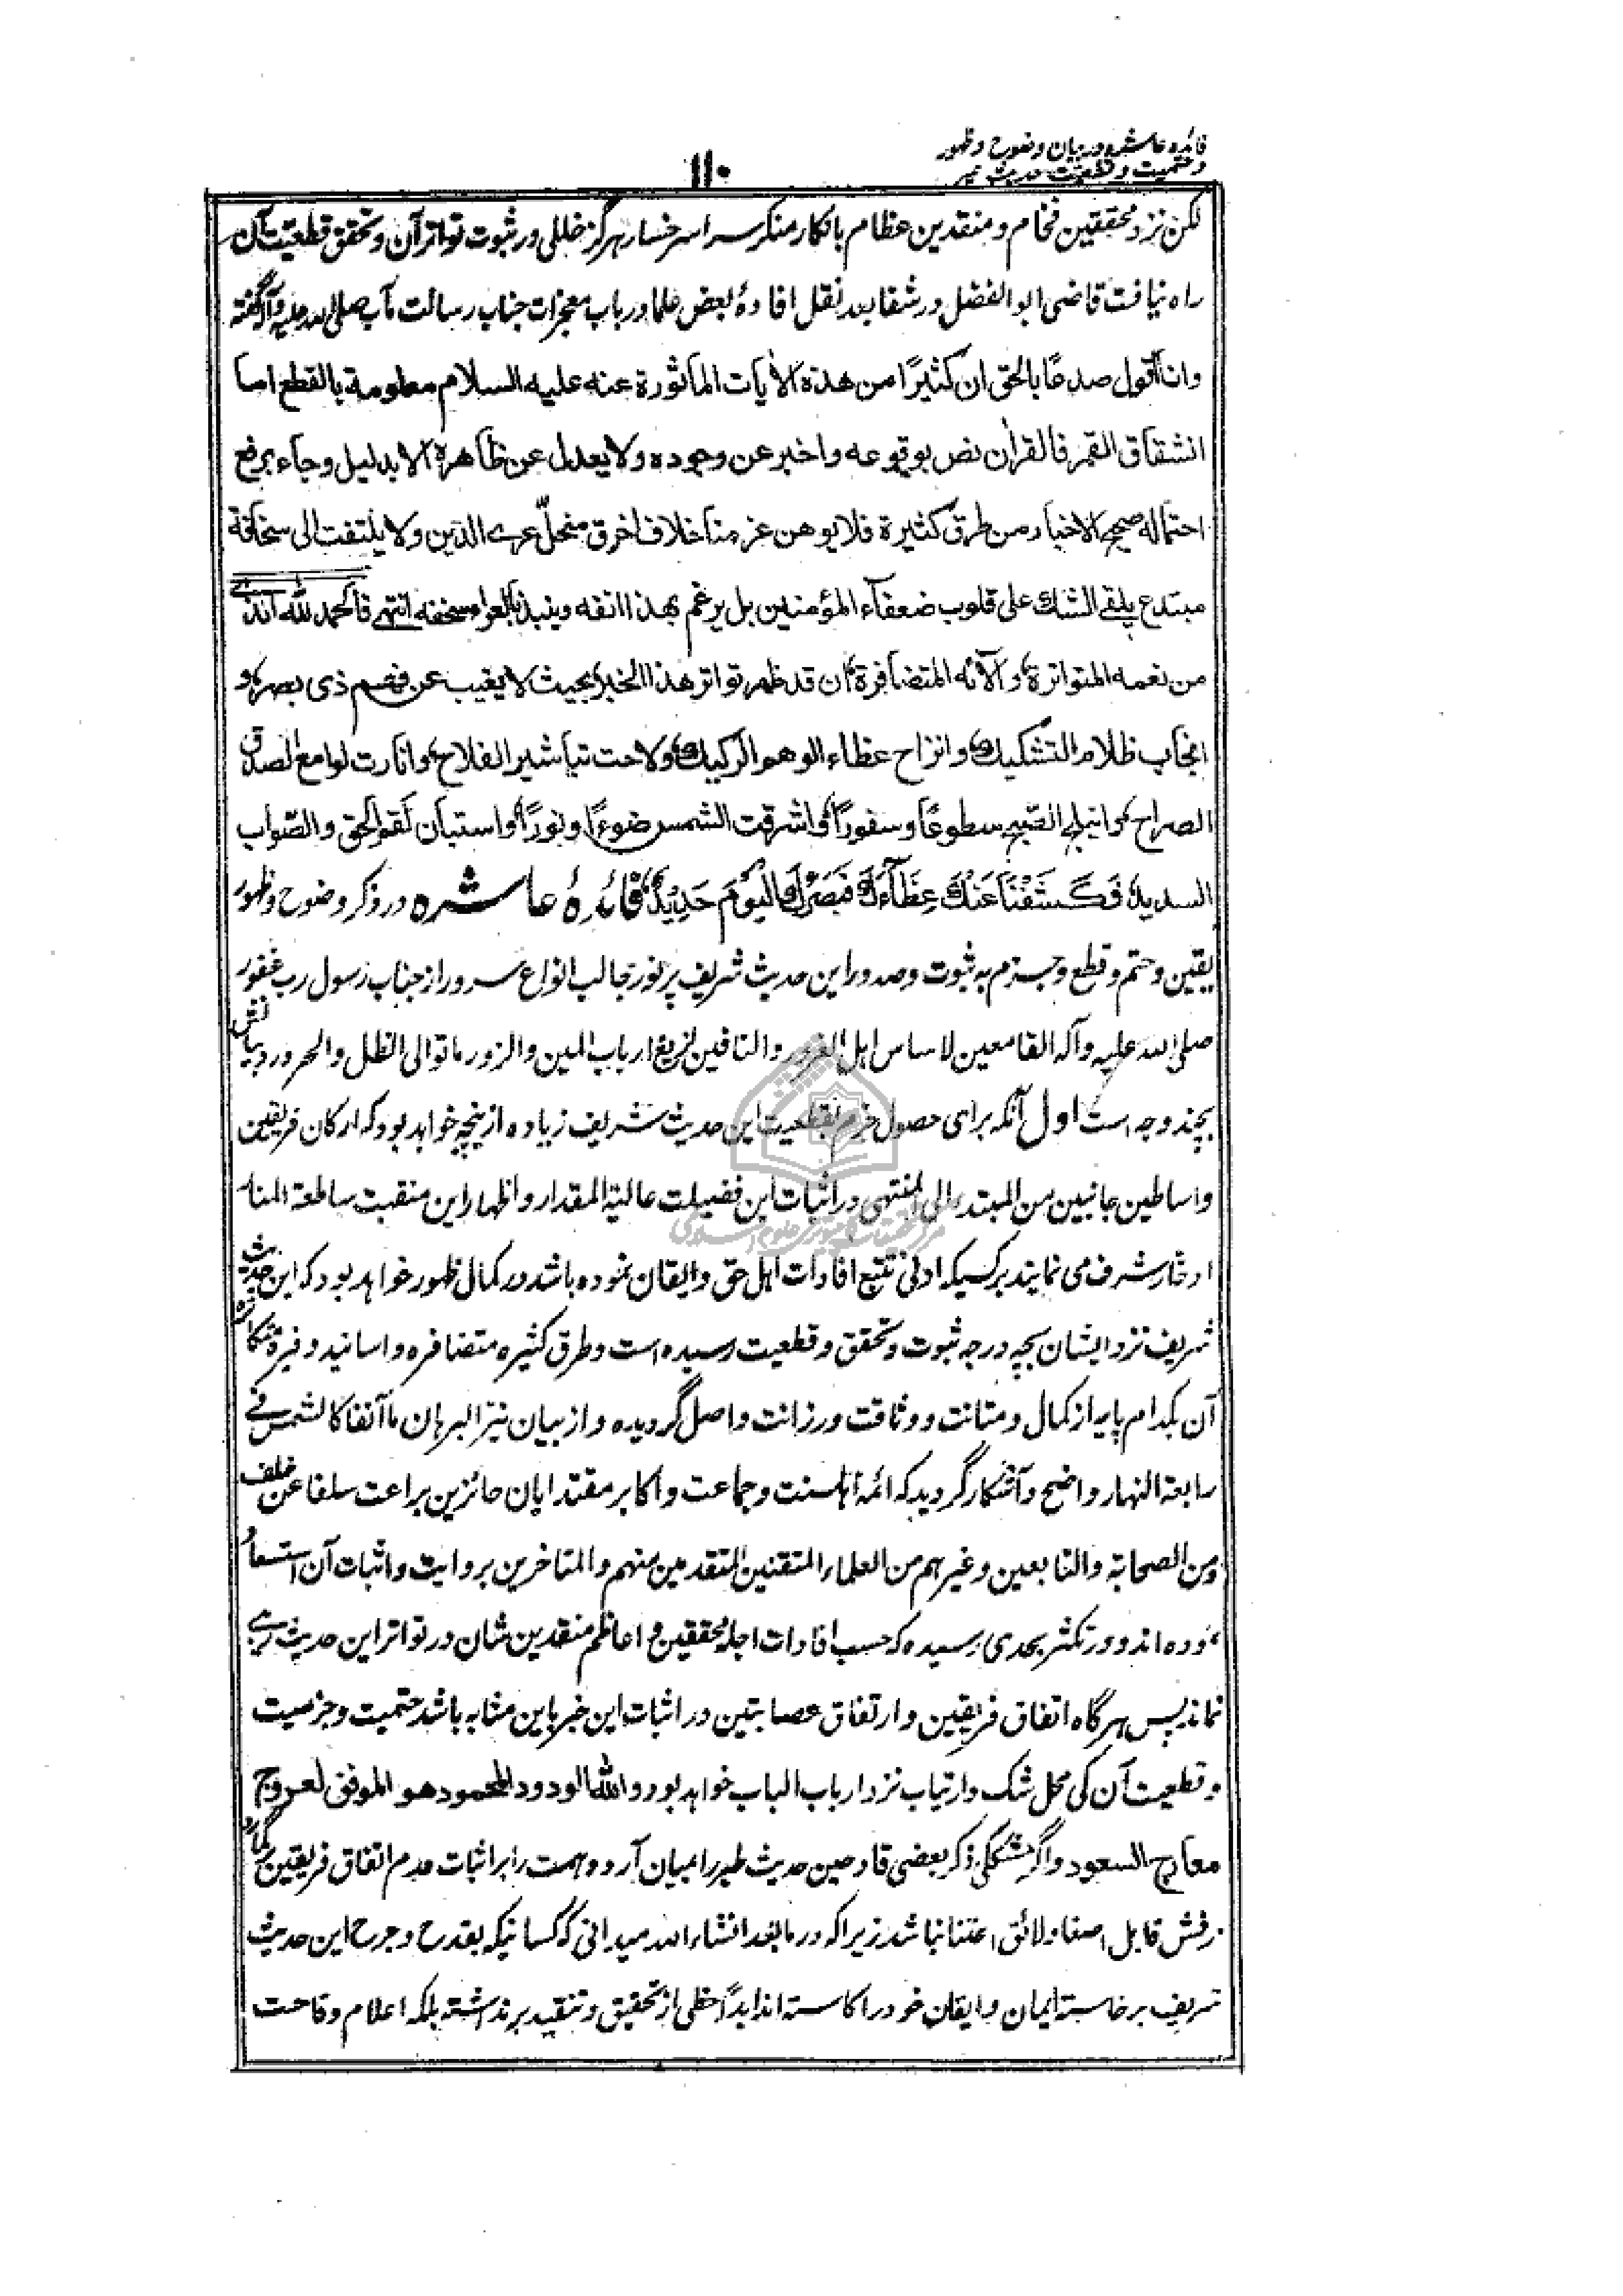 فائده عاشره در بیان وضوح و ظهور
و حتمیت و قطعیت حدیث طیر
۱۱۰
لکن نزد محققین فخام و منقدین عظام بانکار منکر سراسر خسار هرگز خللی در ثبوت تواتر آن و تحقق قطعیت آن
راه نیافت قاضی ابو الفضل در شفا بعد نقل افادۀ بعض علما در باب معجزات جناب رسالت مآب صلی الله علیه وآله گفته
وانا أقول صدعًا بالحق ان کثیرًا من هذه الآیات المأثورة عنه علیه السلام معلومة بالقطع اما
انشقاق القمر فالقرآن نص بوقوعه واخبر عن وجوده ولا یعدل عن ظاهره الا بدلیل وجاء برفع
احتماله صحیح الاخبار من طرق کثیرة فلا یوهن عزمنا خلاف اخرق منحلّ عری الدین ولا یلتفت الی سخافة
مبتدع یلقی الشك علی قلوب ضعفآء المؤمنین بل یرغم بهذا انفه وینبذ بالعراء سخفه انتهی فالحمد لله الذی
من نعمه المتواترة، وآلائه المتضافرة، ان قد ظهر تواتر هذا الخبر بحیث لا یغیب عن فهم ذی بصر، و
انجاب ظلام التشکیك، وانزاح غطاء الوهم الرکیك، ولاحت تباشیر الفلاح، وانارت لوامع الصدق
الصراح، وانبلج الصبح سطوعًا وسفورًا، واشرقت الشمس ضوءًا ونورًا، واستبان لقم الحق والصواب
السدید، فَكَشَفْنَا عَنْكَ غِطَآءَكَ فَبَصَرُكَ الْیَوْمَ حَدِیْدٌ، فائدۀ عاشره در ذکر وضوح و ظهور
یقین و حتم و قطع و جزم به ثبوت و صدور این حدیث شریف پر نور جالب انواع سرور از جناب رسول رب غفور
صلی الله علیه وآله القامعین لاساس اهل الغرور والنافین لزیغ ارباب المین والزور ما توالی الظل والحرور و بیانش
بچند وجه است اول آنکه برای حصول جزم بقطعیت این حدیث شریف زیاده ازینچه خواهد بود که ارکان فریقین
و اساطین جانبین من المبتدء الی المنتهی در اثبات این فضیلت عالیة المقدار و اظهار این منقبت ساطعة المنار
ادخار شرف می نمایند بر کسیکه ادنی تتبع افادات اهل حق و ایقان نموده باشد در کمال ظهور خواهد بود که این حدیث
شریف نزد ایشان بچه درجه ثبوت و تحقق و قطعیت رسیده است و طرق کثیره متضافره و اسانید وفیرۀ متکاثره
آن بکدام پایه از کمال و متانت و وثاقت و رزانت واصل گردیده و از بیان نیّر البرهان ما آنفا کالشمس فی
رابعة النهار واضح و آشکار گردید که ائمه اهلسنت و جماعت و اکابر مقتدایان حائزین براعت سلفا عن خلف
من الصحابة والتابعین وغیرهم من العلماء المتقنین المتقدمین منهم والمتاخرین بروایت و اثبات آن استسعاد
نموده اند و در تکثر بحدی رسیده که حسب افادات اجله محققین و اعاظم منقدین شان در تواتر این حدیث ریبی
نماند پس هر گاه اتفاق فریقین و ارتفاق عصابتین در اثبات این خبر باین مثابه باشد حتمیت و جزمیت
و قطعیت آن کی محل شک و ارتیاب نزد ارباب الباب خواهد بود والله الودود المحمود هو الموفق لعروج
معارج السعود و اگر متشککی ذکر بعضی قادحین حدیث طیر را بمیان آرد و همت را بر اثبات عدم اتفاق فریقین بگمارد
حرفش قابل اصغا و لائق اعتنا نباشد زیرا که در ما بعد انشاء الله میدانی که کسانیکه بقدح و جرح این حدیث
شریف برخاسته ایمان و ایقان خود را کاسته اند ابدًا حظی از تحقیق و تنقید بر نداشته بلکه اعلام وقاحت
مرکز تحقیقات کامپیوتری علوم اسلامی